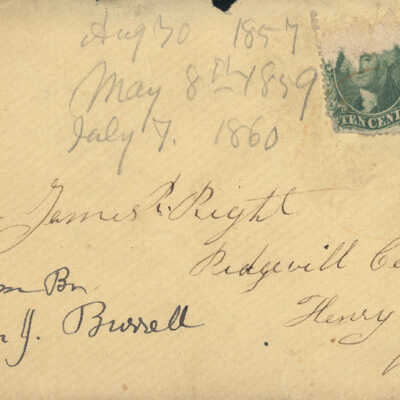 Aug 30 1857
May 8th 1859
July 7. 1860
TEN CENT
James R. Right
Ridgevill Co
Henry
J. Burrell